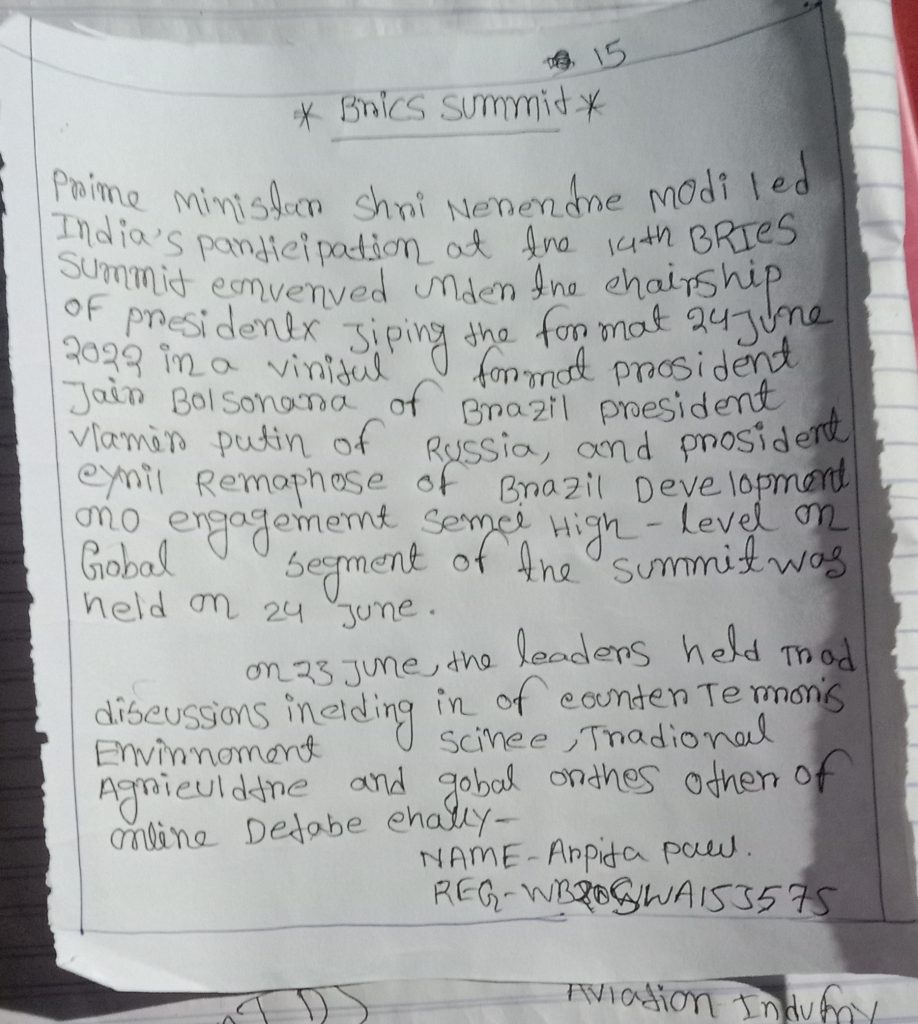 15
* Brics summit *
Prime Ministar Shri Nenendre Modi led
India's participation at the 14th BRIES
Summit convenved under the chairship
of presidentx Jiping the for mat 24 June
2022 in a virital format prosident
Jain Bolsonara of Brazil president
Vlamin putin of Russia, and prosident
eyril Remaphose of Brazil Development
ono engagememt semei High - level on
Gobal segment of the summit was
held on 24 June.
on 23 June, the leaders held Trad
discussions inclding in of counter Terroris
Envirnnoment scinee, Tradional
Agriculdtre and gobal onthes other of
online Detabe
NAME - Arpita paul.
Aviation